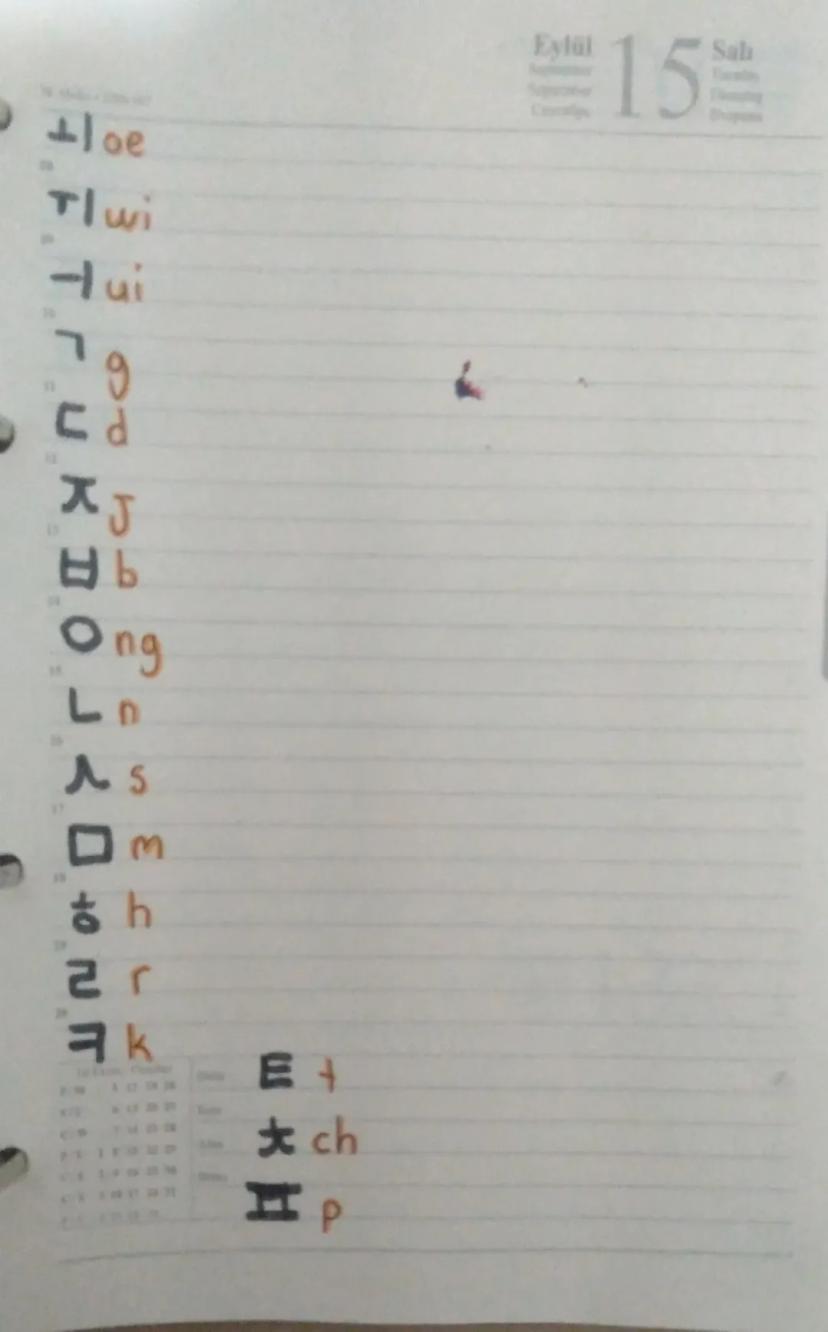 Eylül 15 Salı
ㅚ oe
ㅟ wi
ㅢ ui
ㄱ g
ㄷ d
ㅈ J
ㅂ b
ㅇ ng
ㄴ n
ㅅ s
ㅁ m
ㅎ h
ㄹ r
ㅋ k
ㅌ t
ㅊ ch
ㅍ p